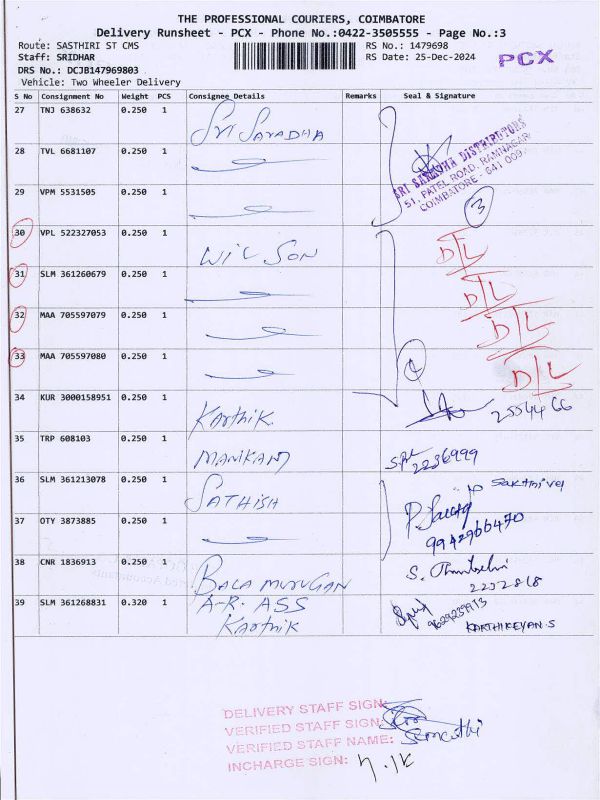 THE PROFESSIONAL COURIERS, COIMBATORE
Delivery Runsheet - PCX - Phone No.:0422-3505555 - Page No.:3
Route: SASTHIRI ST CMS
RS No.: 1479698
Staff: SRIDHAR
RS Date: 25-Dec-2024
PCX
DRS No.: DCJB147969803
Vehicle: Two Wheeler Delivery
S No Consignment No Weight PCS Consignee Details Remarks Seal & Signature
27 TNJ 638632 0.250 1 Sri Saradha
28 TVL 6681107 0.250 1
SRI SARADHA DISTRIBUTORS
51, PATEL ROAD, RAMNAGAR
COIMBATORE - 641 009.
29 VPM 5531505 0.250 1 3
30 VPL 522327053 0.250 1 WILSON D/L
31 SLM 361260679 0.250 1 D/L
32 MAA 705597079 0.250 1 D/L
33 MAA 705597080 0.250 1 4 D/L
34 KUR 3000158951 0.250 1 Karthik 2554466
35 TRP 608103 0.250 1 MANIKAN 2236999
36 SLM 361213078 0.250 1 SATHISH Sakthivel
37 OTY 3873885 0.250 1 9942966470
38 CNR 1836913 0.250 1 BALA MURUGAN 2232868
39 SLM 361268831 0.320 1 A-R. ASS 9629239913
Karthik KARTHIKEYAN.S
DELIVERY STAFF SIGN:
VERIFIED STAFF SIGN:
VERIFIED STAFF NAME:
INCHARGE SIGN: